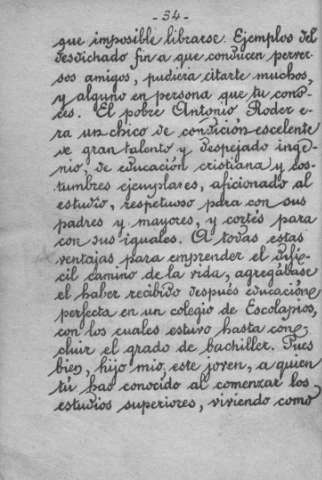 - 34 -
que imposible librarse. Ejemplos del
desdichado fin a que conducen perver-
sos amigos, pudiera citarte muchos,
y alguno en persona que tu cono-
ces. El pobre Antonio Roder e-
ra un chico de condición escelente
de gran talento y despejado inge-
nio, de educación cristiana y cos-
tumbres ejemplares, aficionado al
estudio, respetuoso para con sus
padres y mayores, y cortés para
con sus iguales. A todas estas
ventajas para emprender el difí-
cil camino de la vida, agregábase
el haber recibido después educación
perfecta en un colegio de Escolapios,
con los cuales estuvo hasta con-
cluir el grado de bachiller. Pues
bien, hijo mio, este joven, a quien
tú has conocido al comenzar los
estudios superiores, viviendo como